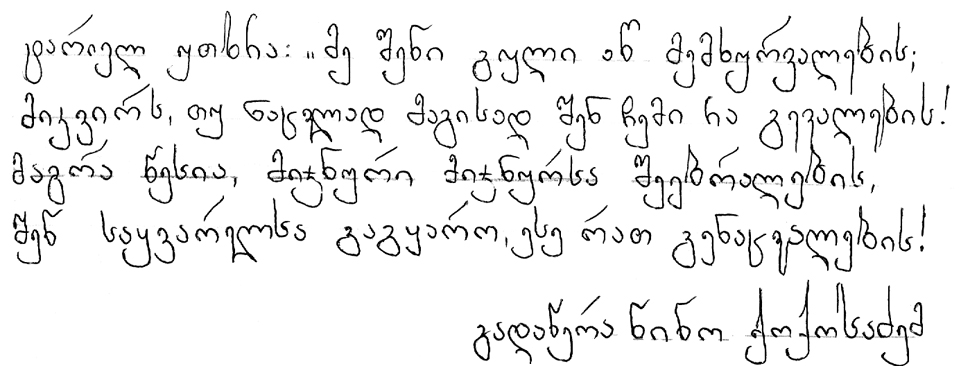 ტარიელ უთხრა: „მე შენი გული აწ მემხურვალების;
მიკვირს, თუ ნაცვლად მაგისად შენ ჩემი რა გევალების!
მაგრა წესია, მიჯნური მიჯნურსა შეებრალების,
შენ საყვარელსა გაგყარო, ესე რათ გენაცვალების!
გადაწერა ნინო ქოქოსაძემ